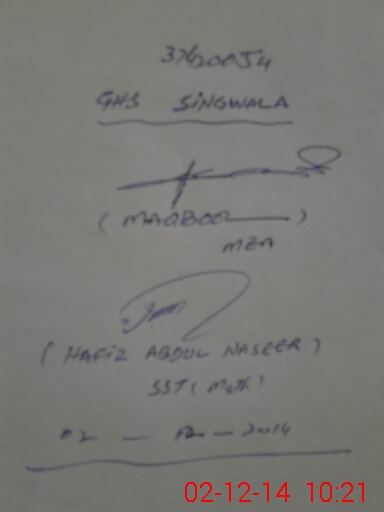 37420054
GHS SINGWALA
(MAQBOOL)
MEA
(HAFIZ ABDUL NASEER)
SST (Math)
02 - 12 - 2014
02-12-14 10:21